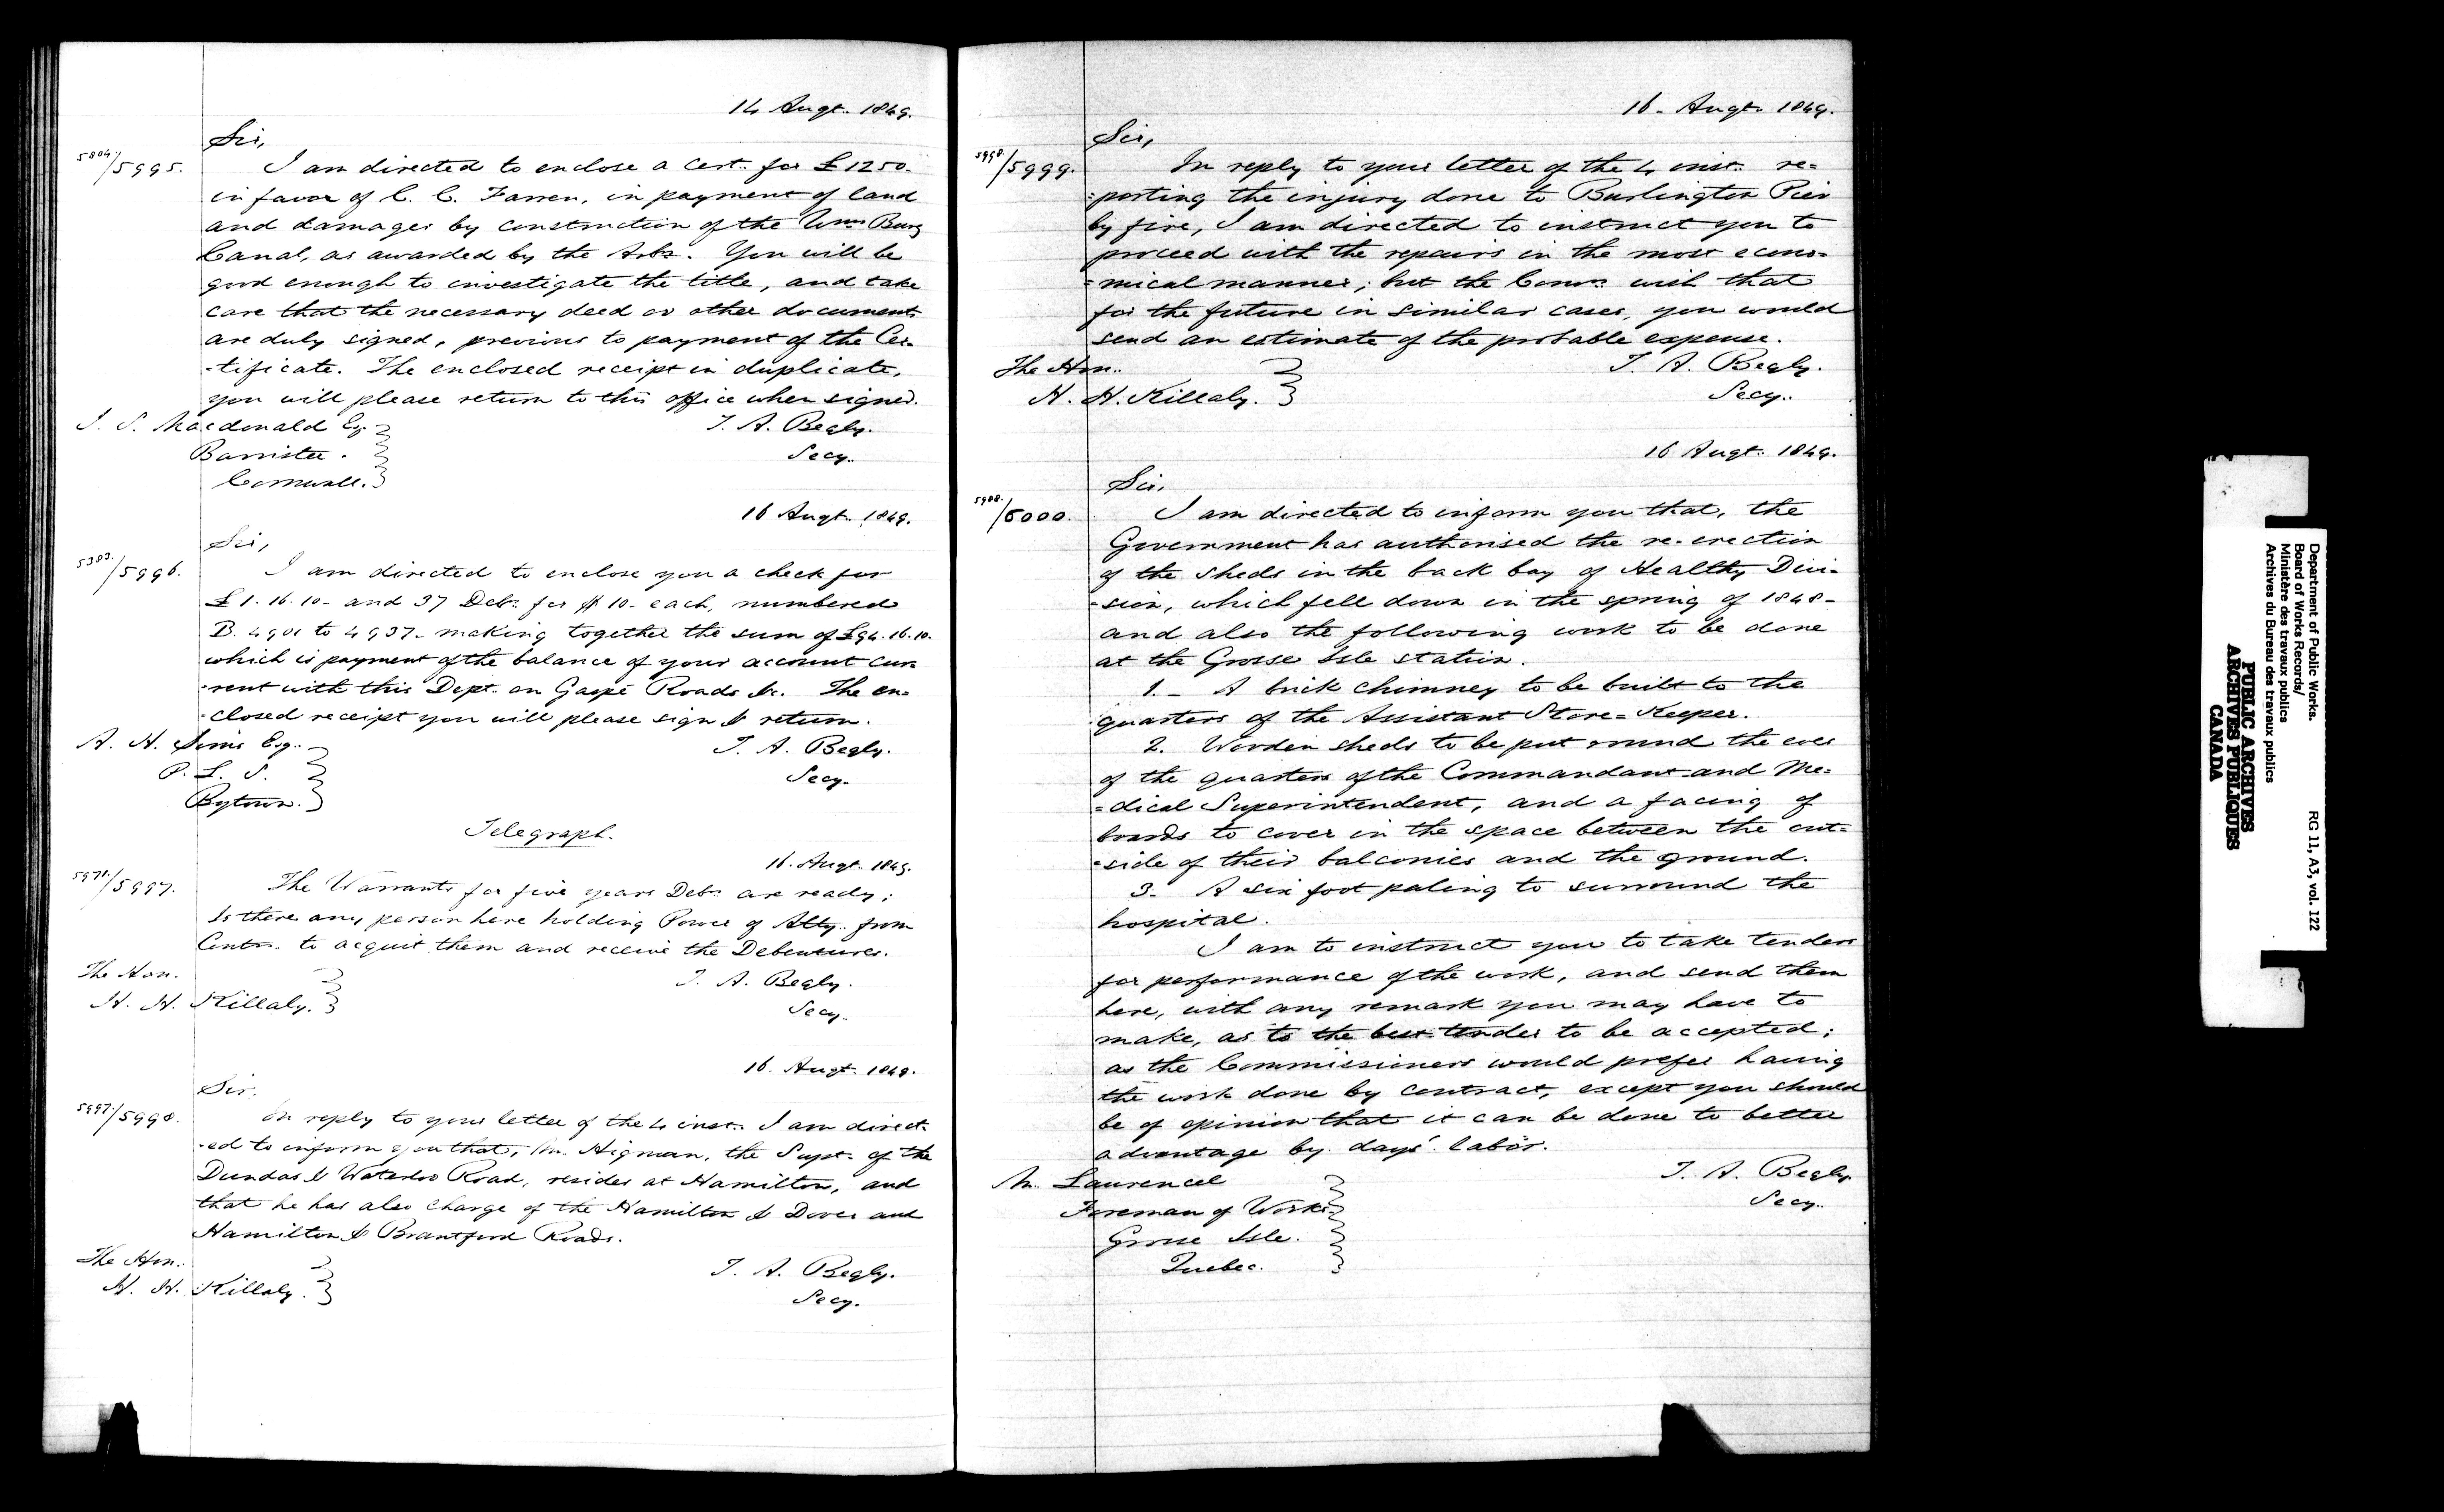 14 Augt. 1849.
Sir,
5804./5995. I am directed to enclose a Cert. for £1250.
in favor of C. C. Farren, in payment of land
and damages by construction of the Wms Burg
Canal, as awarded by the Arbs. You will be
good enough to investigate the title, and take
care that the necessary deed or other documents
are duly signed, previous to payment of the Cer-
-tificate. The enclosed receipt in duplicate,
you will please return to this office when signed.
J. S. Macdonald Eq. T. A. Begly.
Barrister. Secy.
Cornwall.
16 Augt. 1849.
Sir,
5383./5996. I am directed to enclose you a check for
£1.16.10- and 37 Debs. for $10- each, numbered
B. 4901 to 4937- making together the sum of £94.16.10.
which is payment of the balance of your account cur
-rent with this Dept. on Gaspé Roads &c. The en-
-closed receipt you will please sign & return.
A. H. Sims Esq. T. A. Begly.
P. L. S. Secy.
Bytown.
Telegraph.
16. Augt. 1849.
5971./5997. The Warrants for five years Debs. are ready;
Is there any person here holding Power of Atty. from
Contrs. to acquit them and receive the Debentures.
The Hon. T. A. Begly.
H. H. Killaly. Secy.
16. Augt. 1849.
Sir.
5997./5998. In reply to your letter of the 4 inst. I am direct-
-ed to inform you that, Mr. Higman, the Supt. of the
Dundas & Waterloo Road, resides at Hamilton, and
that he has also charge of the Hamilton & Dover and
Hamilton & Brantford Roads.
The Hon. T. A. Begly.
H. H. Killaly. Secy.
16- Augt. 1849.
Sir,
5998./5999. In reply to your letter of the 4 inst. re-
-porting the injury done to Burlington Pier
by fire, I am directed to instruct you to
proceed with the repairs in the most econo-
-mical manner; but the Comrs. wish that
for the future in similar cases, you would
send an estimate of the probable expense.
The Hon. T. A. Begly.
H. H. Killaly. Secy.
16 Augt. 1849.
Sir,
5988./6000. I am directed to inform you that, the
Government has authorised the re-erection
of the sheds in the back bay of Healthy Divi-
-sion, which fell down in the spring of 1848-
and also the following work to be done
at the Grosse Isle station.
1.- A brick chimney to be built to the
quarters of the Assistant Store-Keeper.
2. Wooden sheds to be put round the eves
of the quarters of the Commandant and Me-
-dical Superintendent, and a facing of
boards to cover in the space between the out-
-side of their balconies and the ground.
3- A six foot paling to surround the
hospital.
I am to instruct you to take tenders
for performance of the work, and send them
here, with any remark you may have to
make, as to the best tender to be accepted;
as the Commissioners would prefer having
the work done by contract, except you should
be of opinion that it can be done to better
advantage by days' labor.
M. Laurencel T. A. Begly
Foreman of Works Secy.
Grosse Isle.
Quebec.
Department of Public Works.
Board of Works Records/
Ministère des travaux publics
Archives du Bureau des travaux publics
RG 11, A3, vol. 122
PUBLIC ARCHIVES
ARCHIVES PUBLIQUES
CANADA